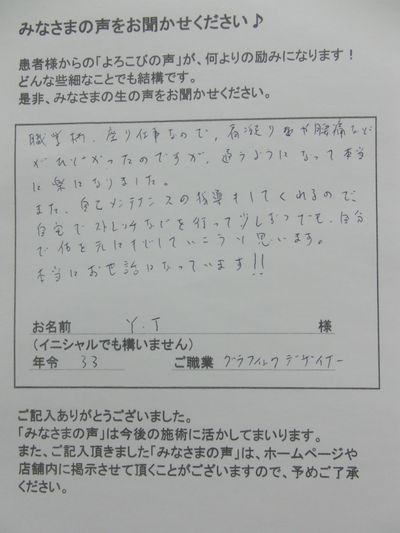 みなさまの声をお聞かせください♪
患者様からの「よろこびの声」が、何よりの励みになります！
どんな些細なことでも結構です。
是非、みなさまの生の声をお聞かせください。
職業柄、座り仕事なので、肩凝りや腰痛など
がひどかったのですが、通うようになって本当
に楽になりました。
また、自己メンテナンスの指導もしてくれるので、
自宅でストレッチなどを行って少しずつでも、自分
で体を元にもどしていこうと思います。
本当にお世話になっています!!
お名前 Y.T 様
(イニシャルでも構いません)
年令 33 ご職業 グラフィックデザイナー
ご記入ありがとうございました。
「みなさまの声」は今後の施術に活かしてまいります。
また、ご記入頂きました「みなさまの声」は、ホームページや
店舗内に掲示させて頂くことがございますので、予めご了承
ください。